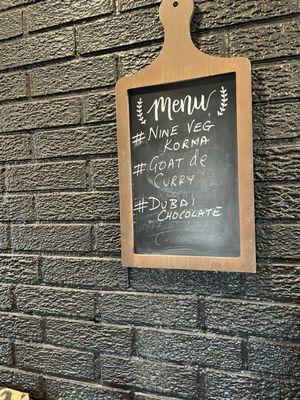 Menu
#NINE VEG
KORMA
#GOAT de
CURRY
#DUBAI
CHOCOLATE